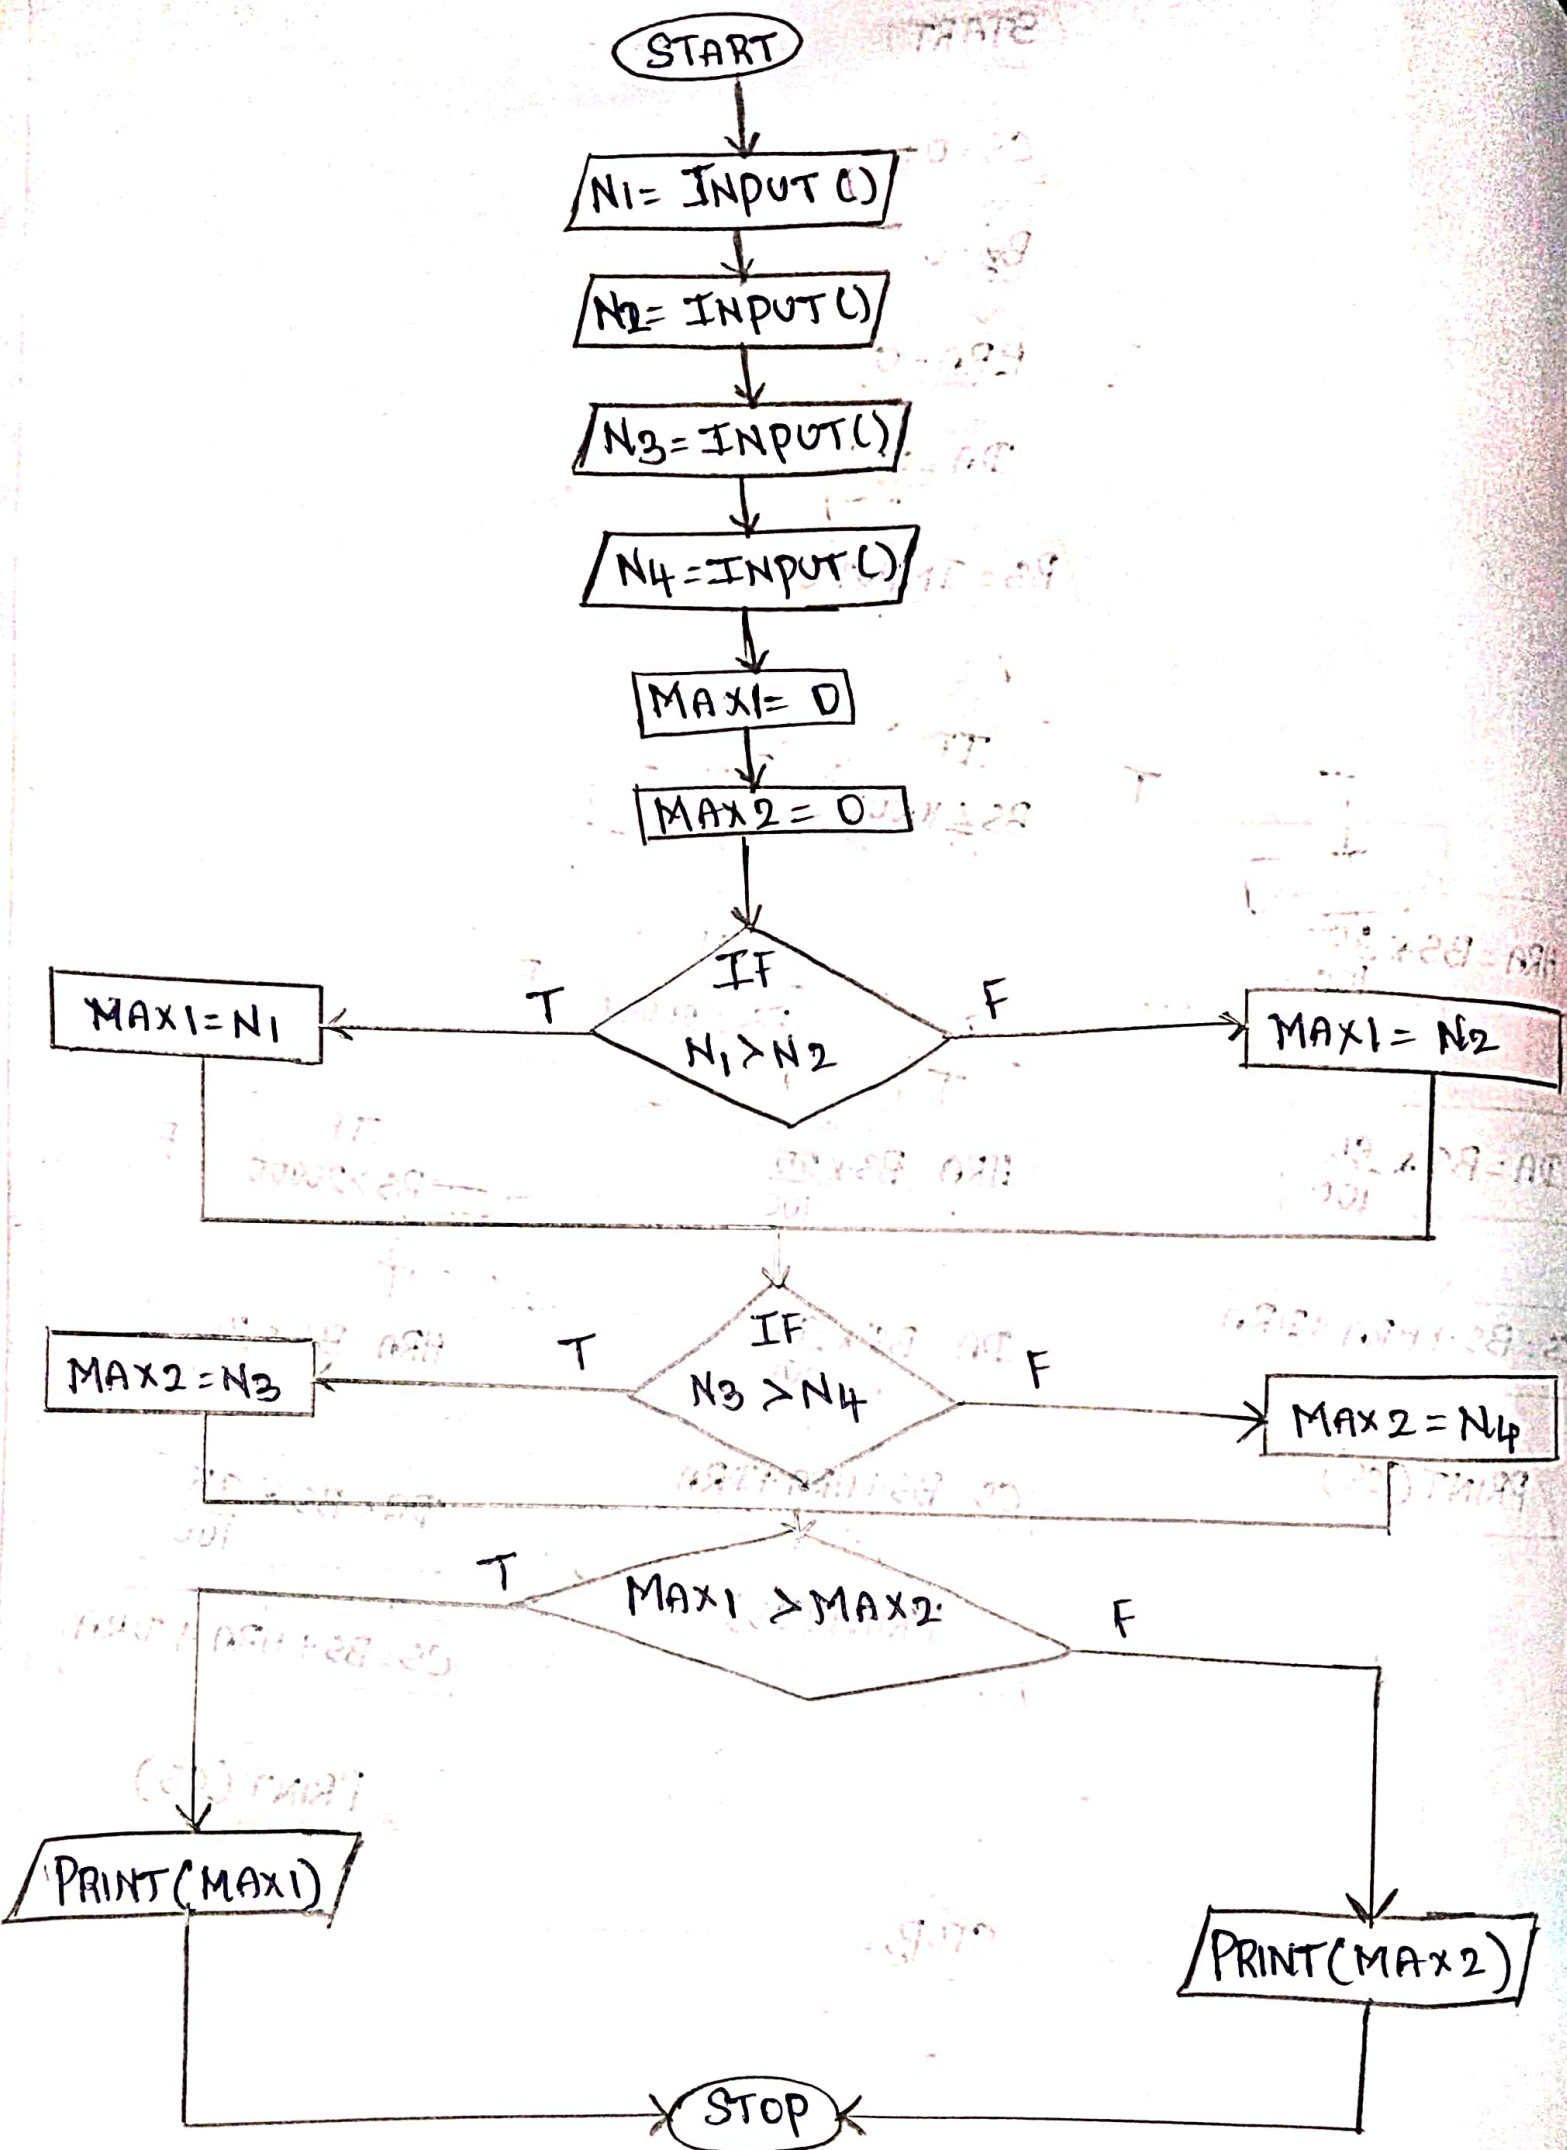 START
N1= INPUT()
N2= INPUT()
N3=INPUT()
N4=INPUT()
MAX1= 0
MAX2= 0
IF
N1>N2
T
F
MAX1=N1
MAX1= N2
IF
N3>N4
T
F
MAX2=N3
MAX2=N4
MAX1 >MAX2
T
F
PRINT(MAX1)
PRINT(MAX2)
STOP